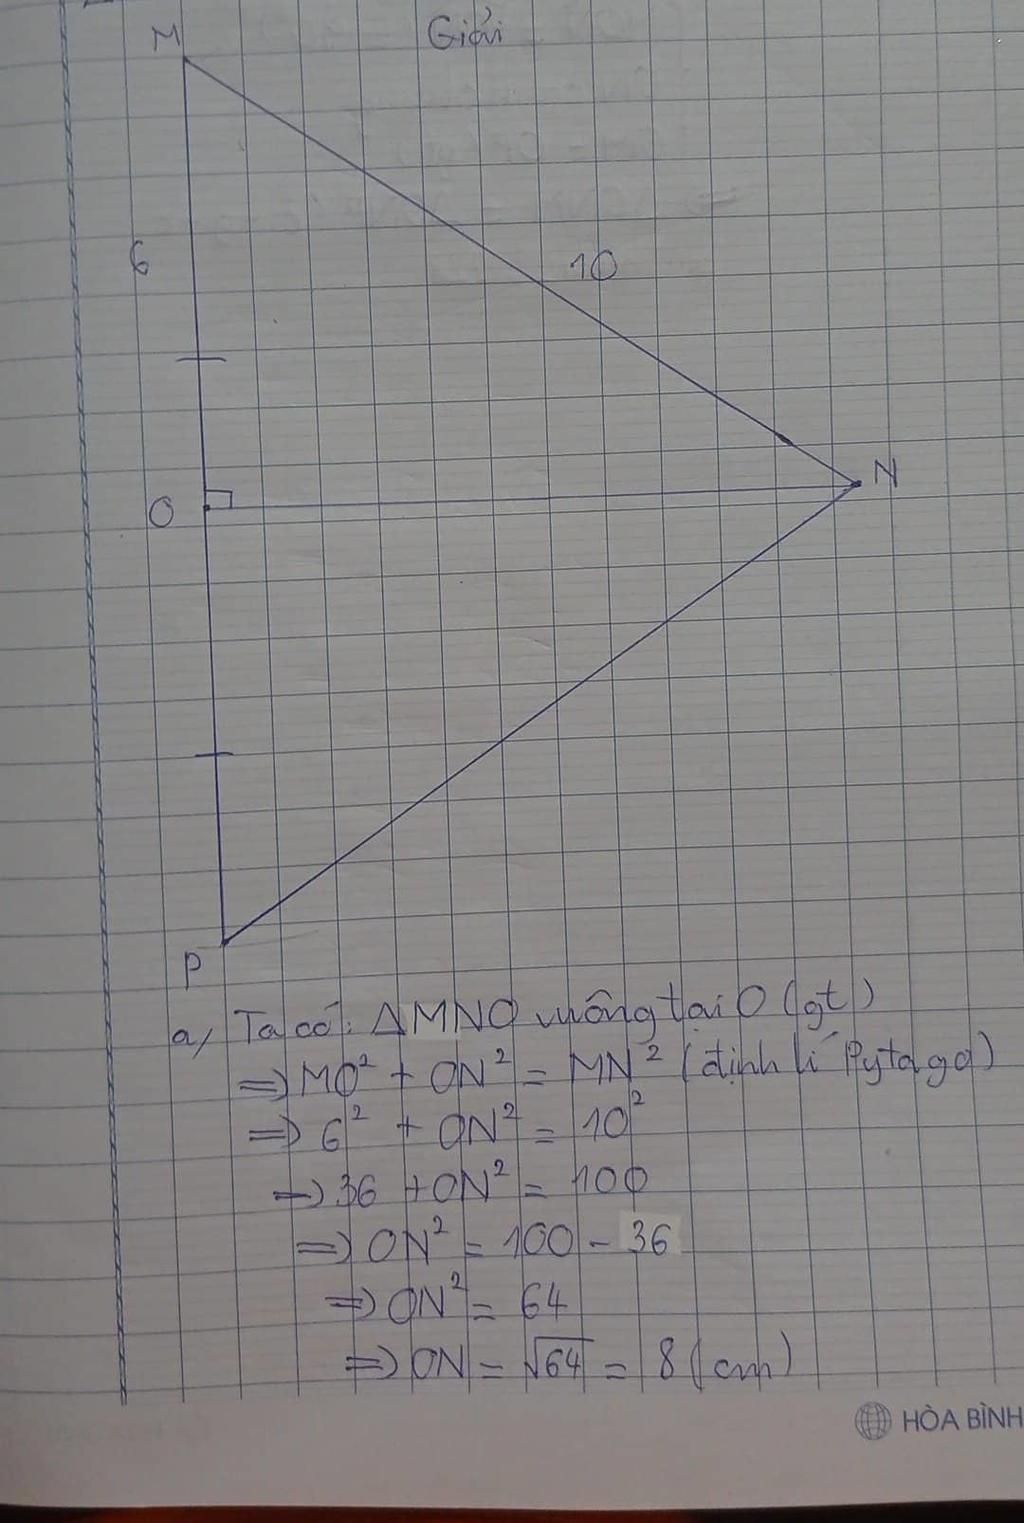 Giải
M
6
10
O
N
P
a, Ta có: ΔMNO vuông tại O (gt)
=> MO² + ON² = MN² (định lí Pytago)
=> 6² + ON² = 10²
=> 36 + ON² = 100
=> ON² = 100 - 36
=> ON² = 64
=> ON = √64 = 8 (cm)
HÒA BÌNH